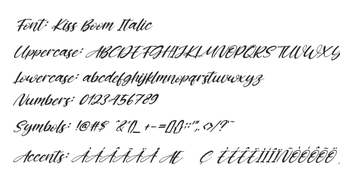 Font: Kiss Boom Italic
Uppercase: ABCDEFGHIJKLMNOPQRSTUVWXY
Lowercase: abcdefghijklmnopqrstuvwxyz
Numbers: 0123456789
Symbols: !@#$ ^&*()_ +-=[]{}:;"',.<>/?~
Accents: ÀÁÂÃÄÅ Æ Ç ÈÉÊËÌÍÎÏÑÒÓÔÕÖ